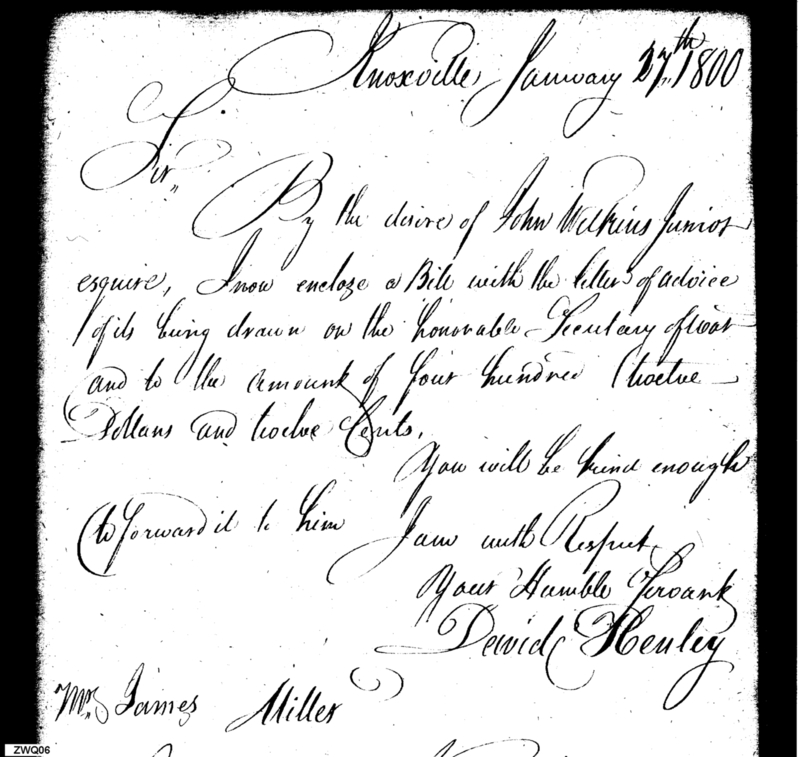 Knoxville January 27th 1800
Sir,,
By the desire of John Wilkins Junior
esquire, I now encloze a Bill with the letter of advice
of its being drawn on the honorable Secretary of War
and to the amount of four hundred twelve
Dollars and twelve Cents.
You will be kind enough
to forward it to him I am with Respect
Your Humble Servant
David Henley
Mr. James Miller
ZWQ06